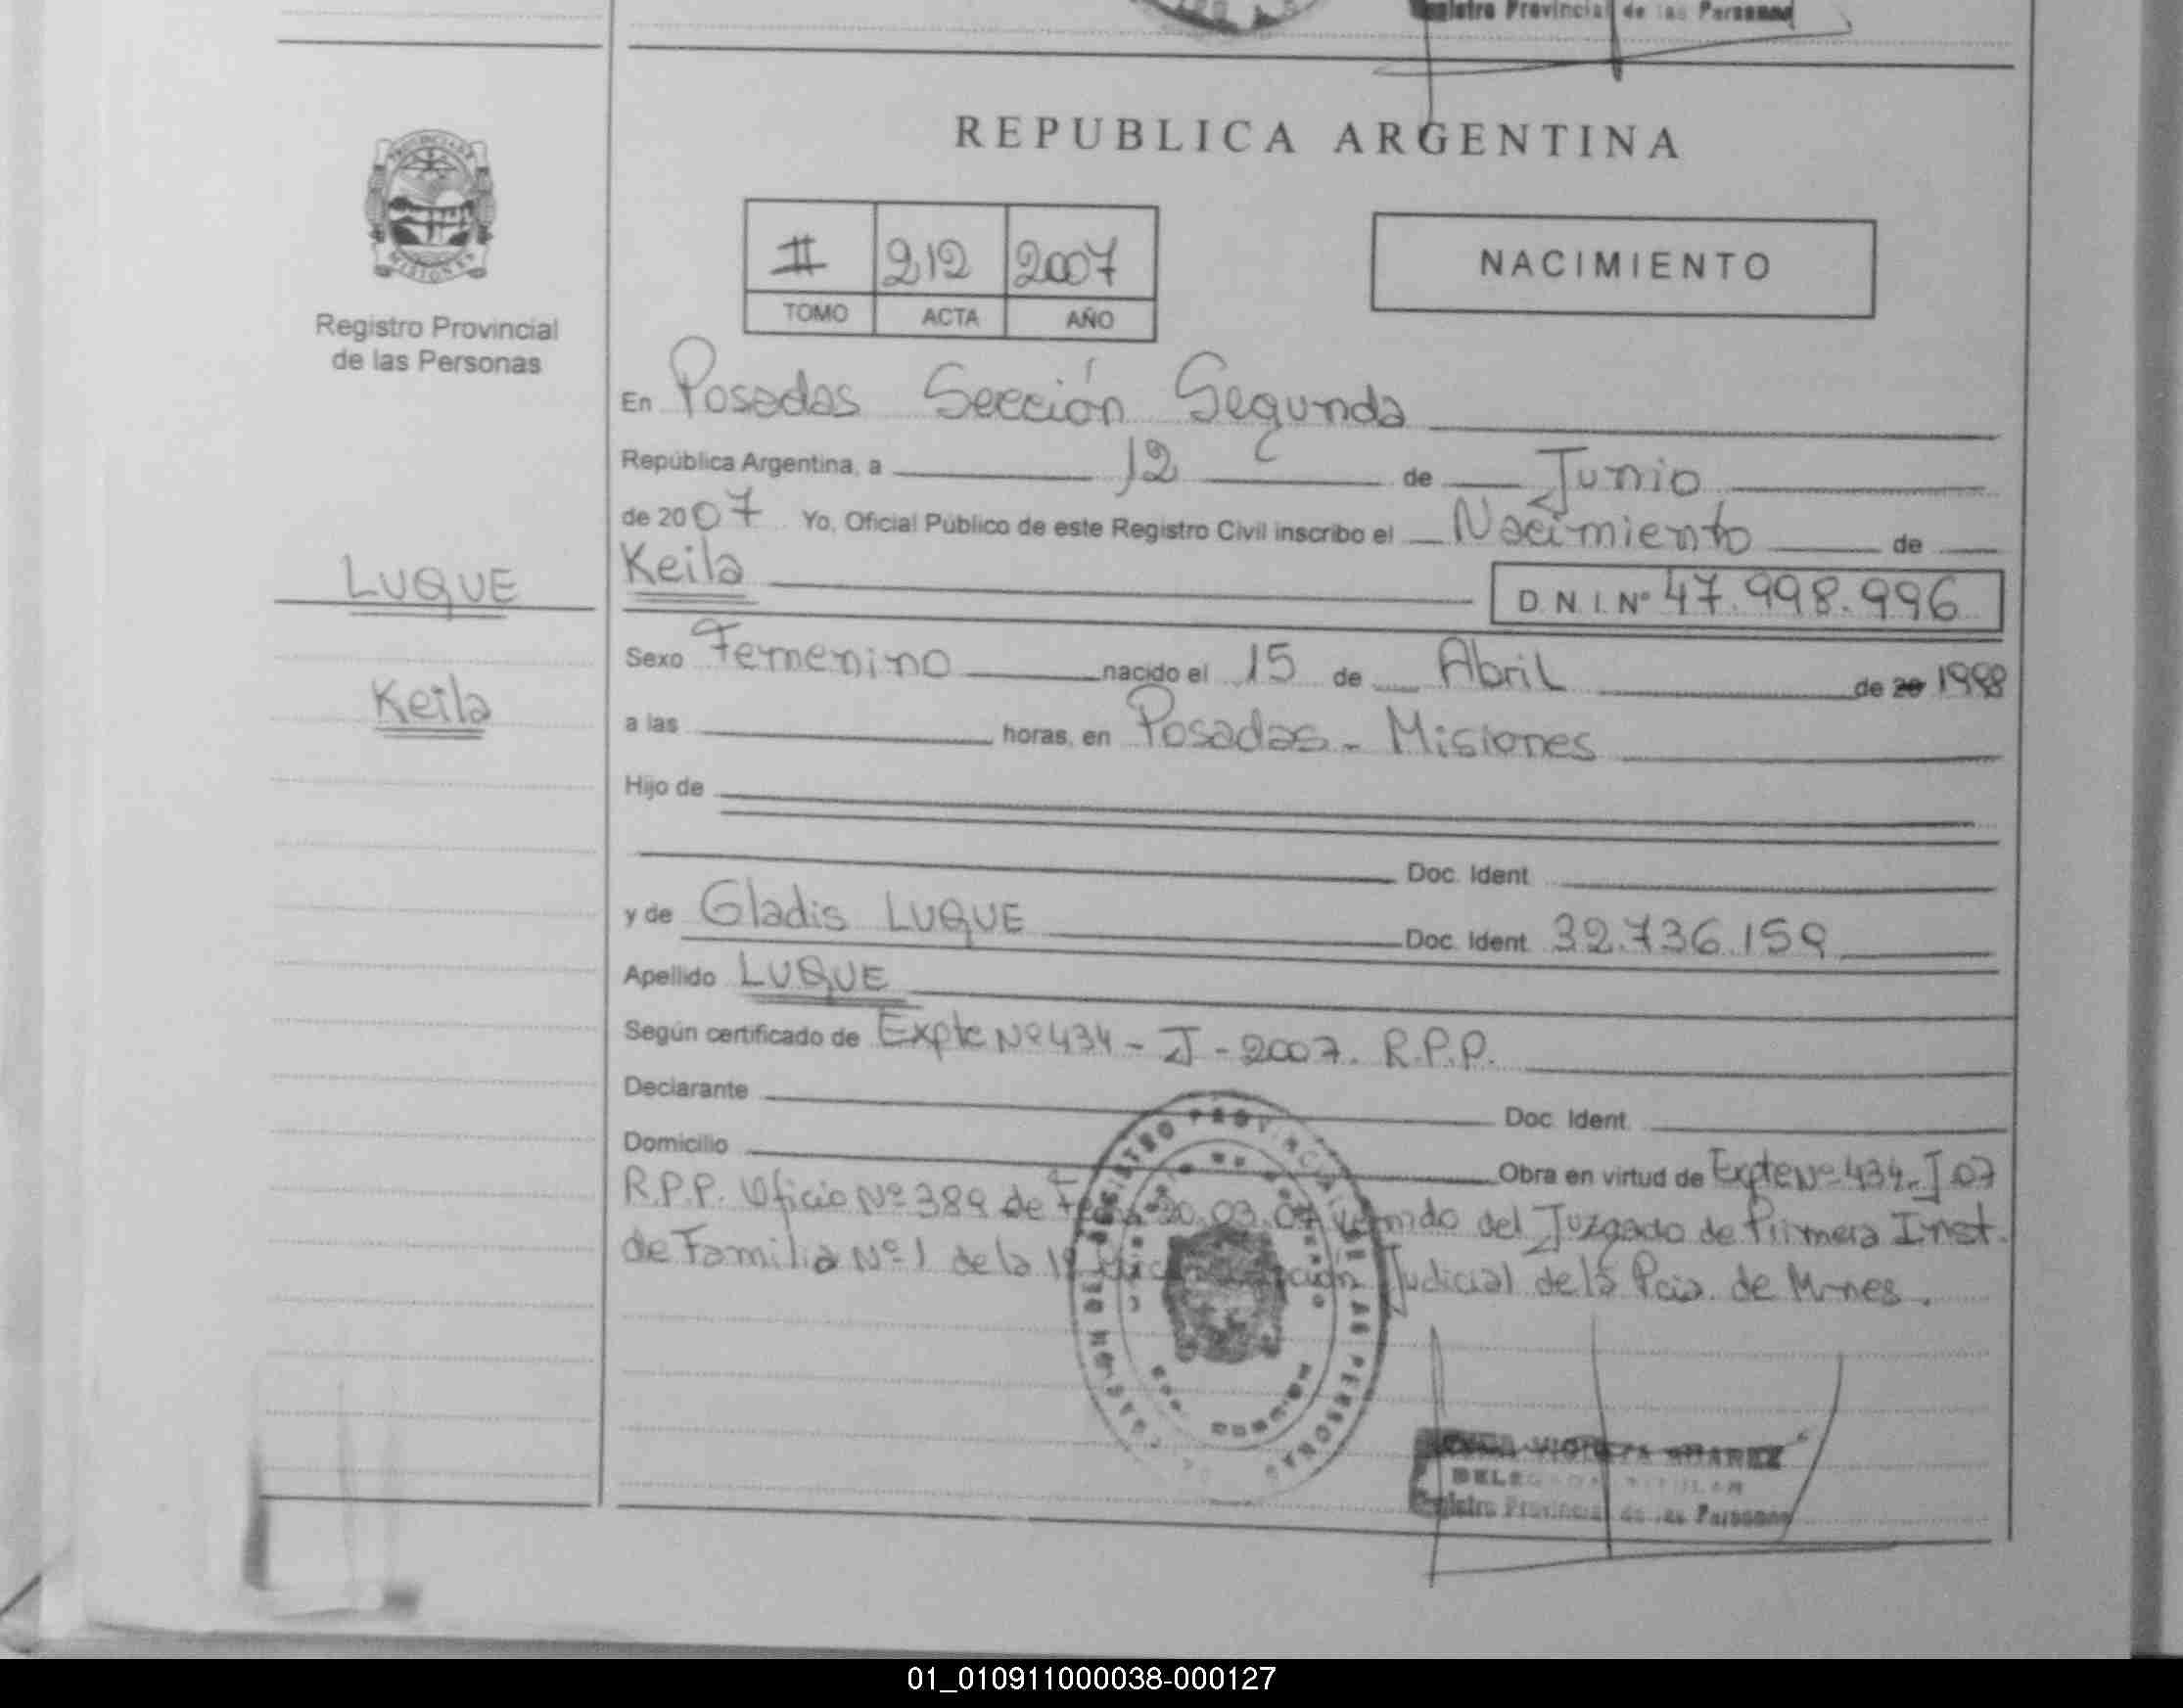 Registro Provincial de las Personas
REPUBLICA ARGENTINA
PROVINCIA DE
MISIONES
Registro Provincial
de las Personas
II 212 2007
TOMO ACTA AÑO
NACIMIENTO
En Posadas Sección Segunda
República Argentina, a 12 de Junio
de 2007 Yo, Oficial Público de este Registro Civil inscribo el Nacimiento de
LUQUE
Keila
Keila
D.N.I. Nº 47.998.996
Sexo Femenino nacido el 15 de Abril de 20 1998
a las horas, en Posadas - Misiones
Hijo de
Doc. Ident.
y de Gladis LUQUE Doc. Ident. 32.736.159
Apellido LUQUE
Según certificado de Expte Nº 434 - J - 2007. R.P.P.
Declarante Doc. Ident.
Domicilio Obra en virtud de Expte Nº 434-J 07
R.P.P. Oficio Nº 389 de 20.03.07 del Juzgado de Primera Inst.
de Familia Nº 1 de la 1º Judicial de la Pcia. de Mnes.
REGISTRO PROVINCIAL DE LAS PERSONAS
Registro Provincial de las Personas
01_010911000038-000127